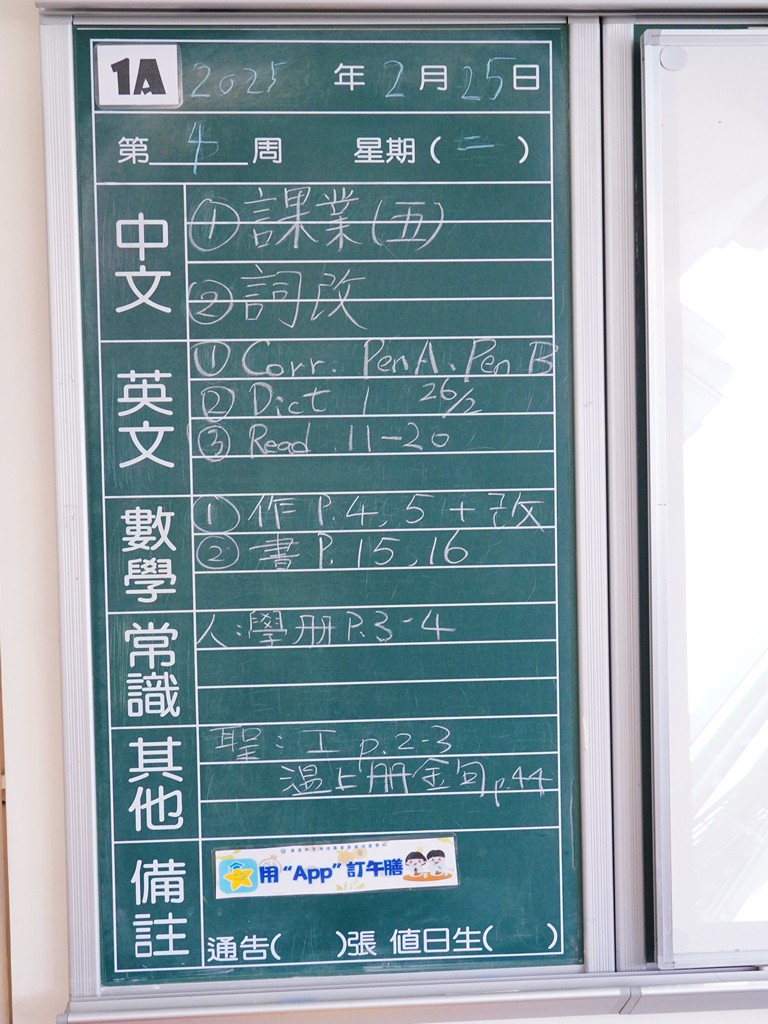 1A 2025 年 2 月 25 日
第 4 周 星期( 二 )
中文
① 課業(五)
② 詞改
英文
① Corr. Pen A. Pen B
② Dict 1 26/2
③ Read 11-20
數學
① 作 P.4, 5 + 改
② 書 P. 15, 16
常識
人:學册 P.3-4
其他
聖: 工 p.2-3
溫上册金句 p.44
備註
用“App”訂午膳
通告( )張 值日生( )